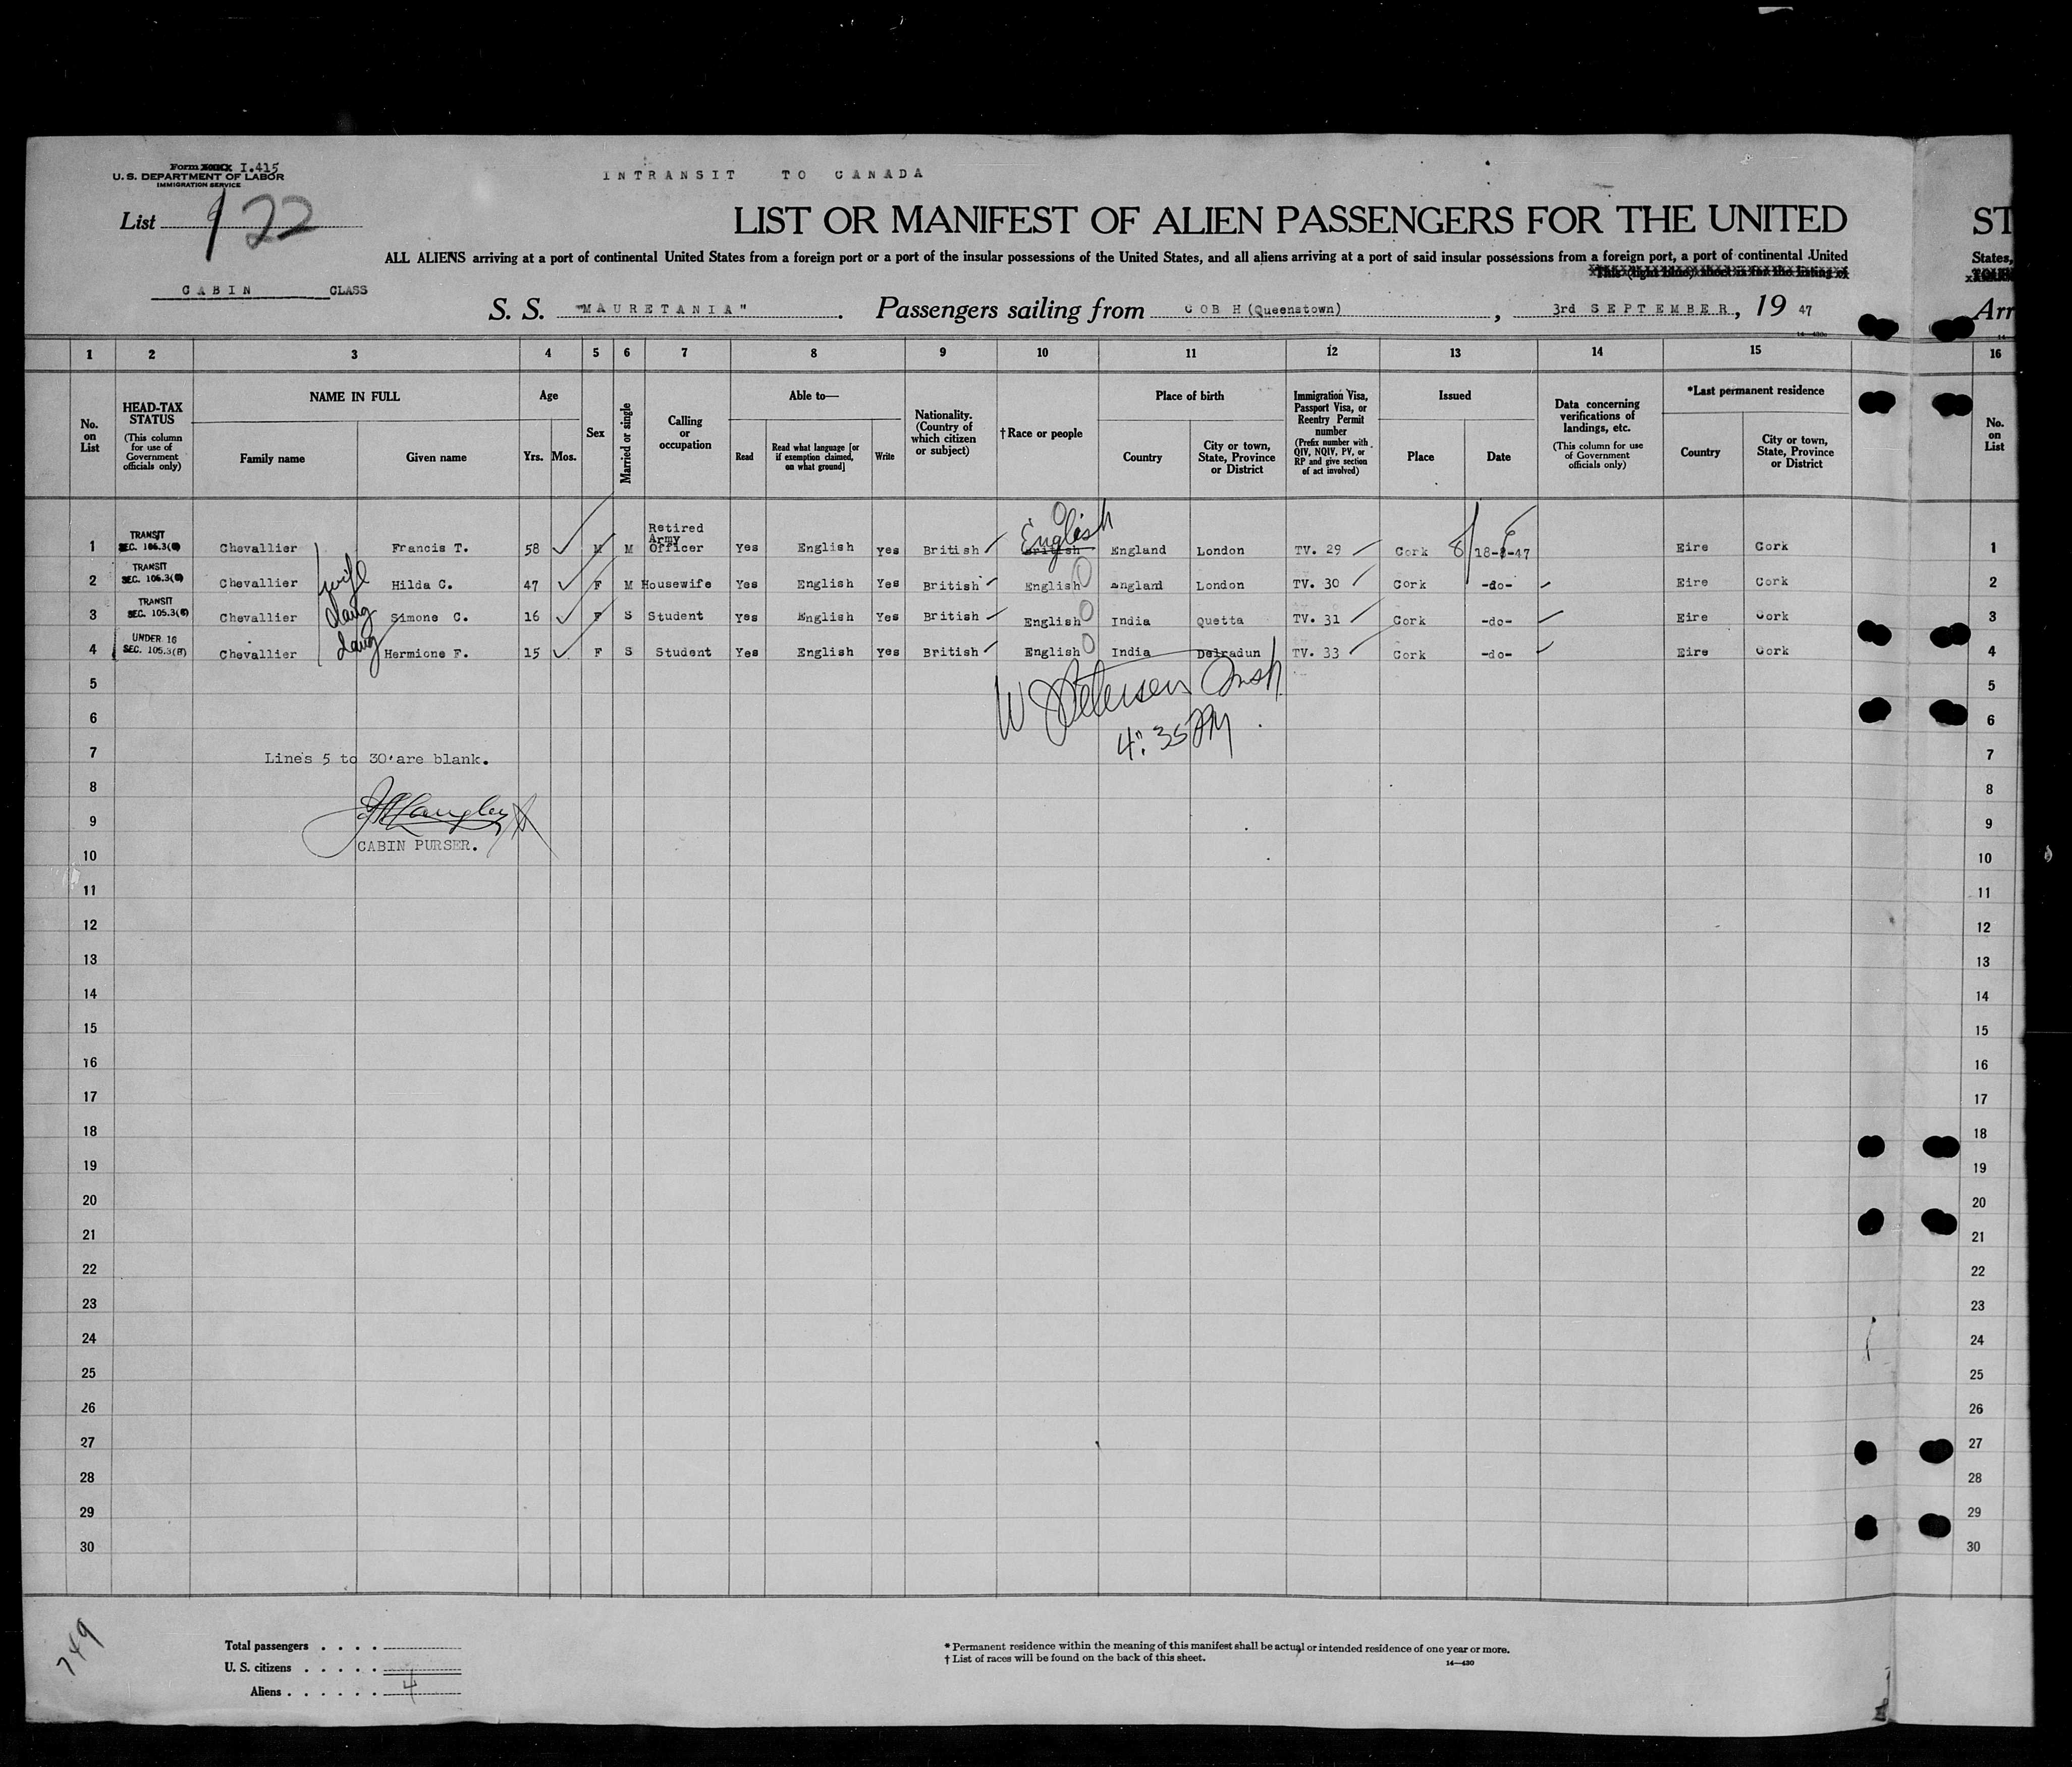 Form I.415
U. S. DEPARTMENT OF LABOR
IMMIGRATION SERVICE
INTRANSIT TO CANADA
List 122
LIST OR MANIFEST OF ALIEN PASSENGERS FOR THE UNITED ST
ALL ALIENS arriving at a port of continental United States from a foreign port or a part of the insular possessions of the United States, and all aliens arriving at a port of said insular possessions from a foreign port, a port of continental United States,
This (light blue) sheet is for the listing of
CABIN CLASS
S. S. "MAURETANIA". Passengers sailing from COBH (Queenstown), 3rd SEPTEMBER, 19 47 Arr
1 2 3 4 5 6 7 8 9 10 11 12 13 14 15 16
No. on List
HEAD-TAX STATUS
(This column for use of Government officials only)
NAME IN FULL
Family name
Given name
Age
Yrs. Mos.
Sex
Married or single
Calling or occupation
Able to—
Read
Read what language [or if exemption claimed, on what ground]
Write
Nationality. (Country of which citizen or subject)
†Race or people
Place of birth
Country
City or town, State, Province or District
Immigration Visa, Passport Visa, or Reentry Permit number
(Prefix number with QIV, NQIV, PV, or RP and give section of act involved)
Issued
Place
Date
Data concerning verifications of landings, etc.
(This column for use of Government officials only)
*Last permanent residence
Country
City or town, State, Province or District
No. on List
1 TRANSIT SEC. 105.3(B) Chevallier Francis T. 58 M M Retired Army Officer Yes English Yes British British English England London TV. 29 Cork 18-8-47 Eire Cork 1
2 TRANSIT SEC. 105.3(B) Chevallier wife Hilda C. 47 F M Housewife Yes English Yes British English England London TV. 30 Cork -do- Eire Cork 2
3 TRANSIT SEC. 105.3(B) Chevallier daug Simone C. 16 F S Student Yes English Yes British English India Quetta TV. 31 Cork -do- Eire Cork 3
4 UNDER 16 SEC. 105.3(B) Chevallier daug Hermione F. 15 F S Student Yes English Yes British English India Delradun TV. 33 Cork -do- Eire Cork 4
5 W Petersen Insp 5
6 4:35 PM 6
7 Lines 5 to 30 are blank. 7
8 8
9 9
CABIN PURSER.
10 10
11 11
12 12
13 13
14 14
15 15
16 16
17 17
18 18
19 19
20 20
21 21
22 22
23 23
24 24
25 25
26 26
27 27
28 28
29 29
30 30
749
Total passengers . . . .
U. S. citizens . . . . .
Aliens . . . . . . 4
* Permanent residence within the meaning of this manifest shall be actual or intended residence of one year or more.
† List of races will be found on the back of this sheet.
14—430